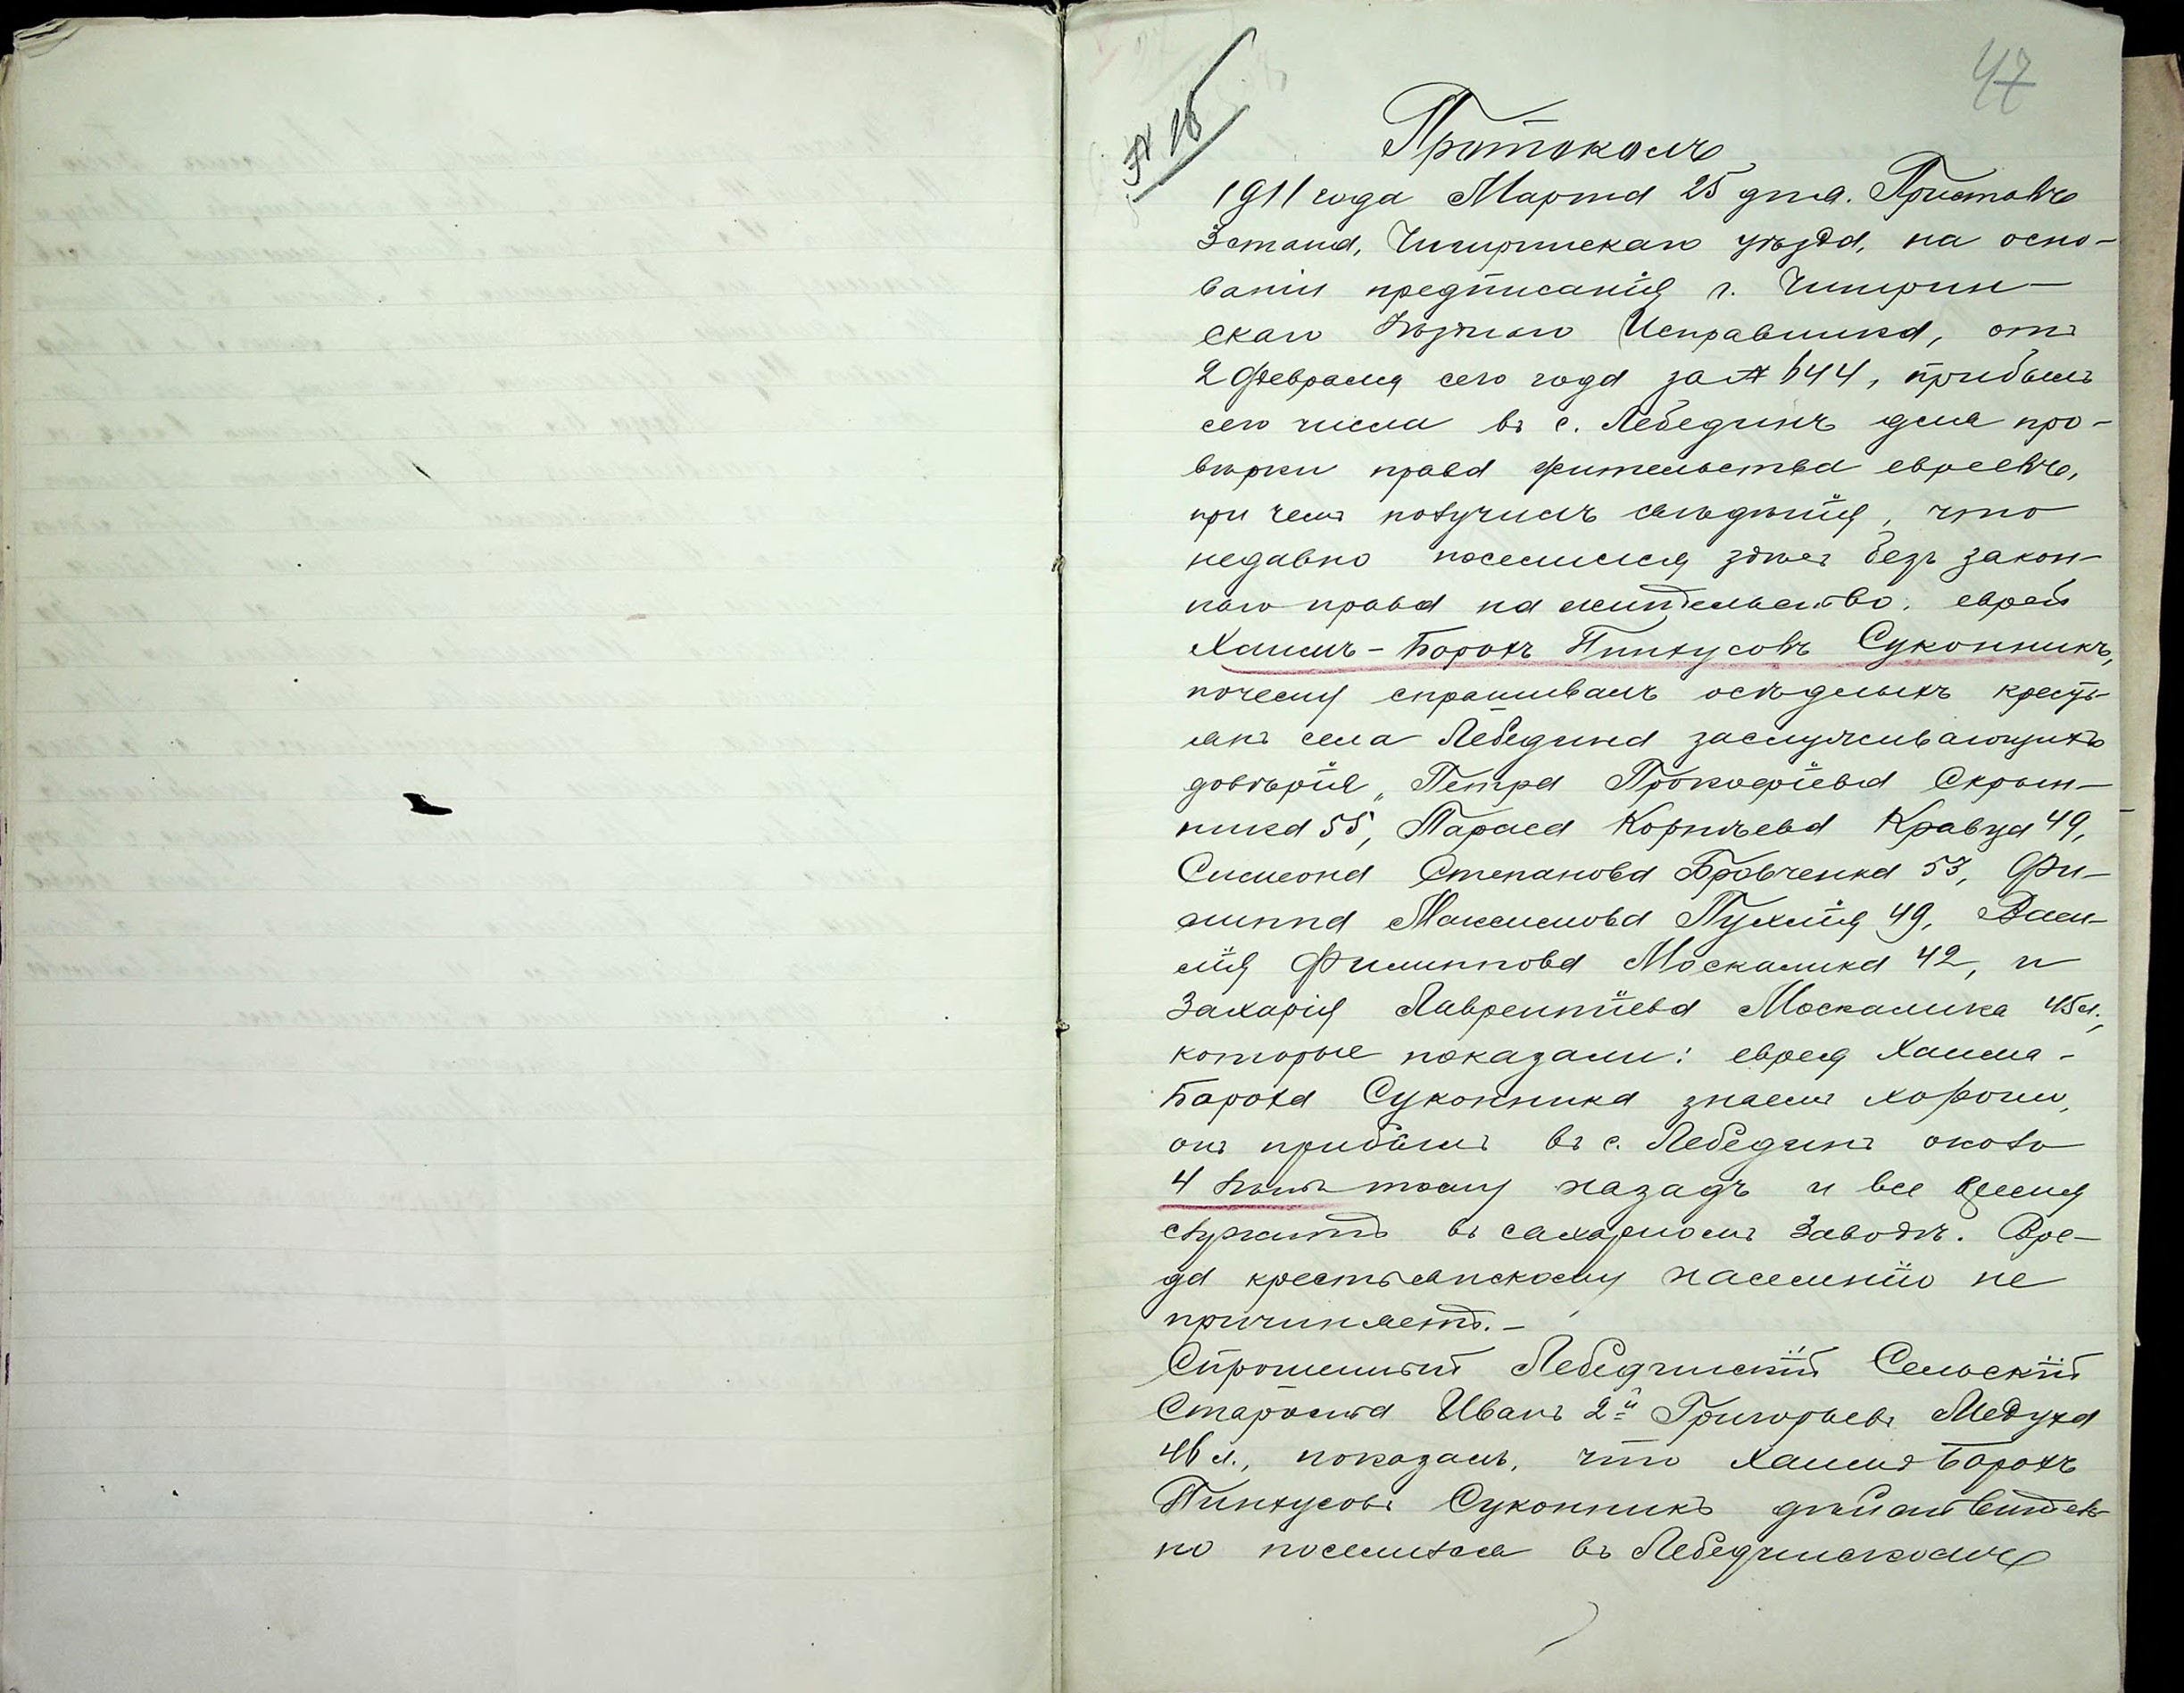 47
№ 16
Протоколъ
1911 года Марта 25 дня. Приставъ
3 стана, Чигиринскаго уѣзда, на осно-
ваніи предписанія г. Чигирин-
скаго Уѣзднаго Исправника, отъ
2 Февраля сего года за № 644, прибылъ
сего числа въ с. Лебединъ для про-
вѣрки права жительства евреевъ,
при чемъ получилъ свѣдѣнія, что
недавно поселился здѣсь безъ закон-
наго права на жительство, еврей
Хаимъ-Борохъ Пинхусовъ Суконникъ,
почему спрашивалъ осѣдлыхъ кресть-
янъ села Лебедина заслуживающихъ
довѣрія, Петра Прокофіева Скрып-
ника 55, Тараса Корнѣева Кравца 49,
Симеона Степанова Бровченка 53, Фи-
липпа Максимова Пухлія 49, Васи-
лія Филиппова Москалика 42, и
Захарія Лаврентіева Москалика 45 л.,
которые показали: еврея Хаима-
Бороха Суконника знаемъ хорошо,
онъ прибылъ въ с. Лебединъ около
4 лѣтъ тому назадъ и все время
служитъ въ сахарномъ заводѣ. Вре-
да крестьянскому населенію не
причиняетъ.-
Спрошенный Лебединскій Сельскій
Староста Иванъ 2й Григорьевъ Медуха
46 л., показалъ, что Хаимъ Борохъ
Пинхусовъ Суконникъ дѣйствитель-
но поселился въ Лебединскомъ